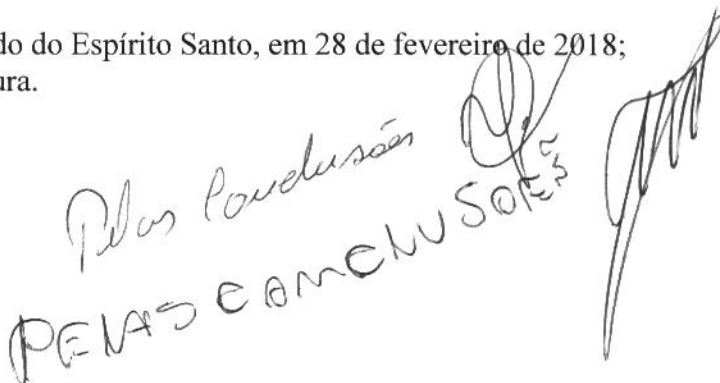 do do Espírito Santo, em 28 de fevereiro de 2018;
ura.
Pelas Conclusões
PELAS CONCLUSÕES